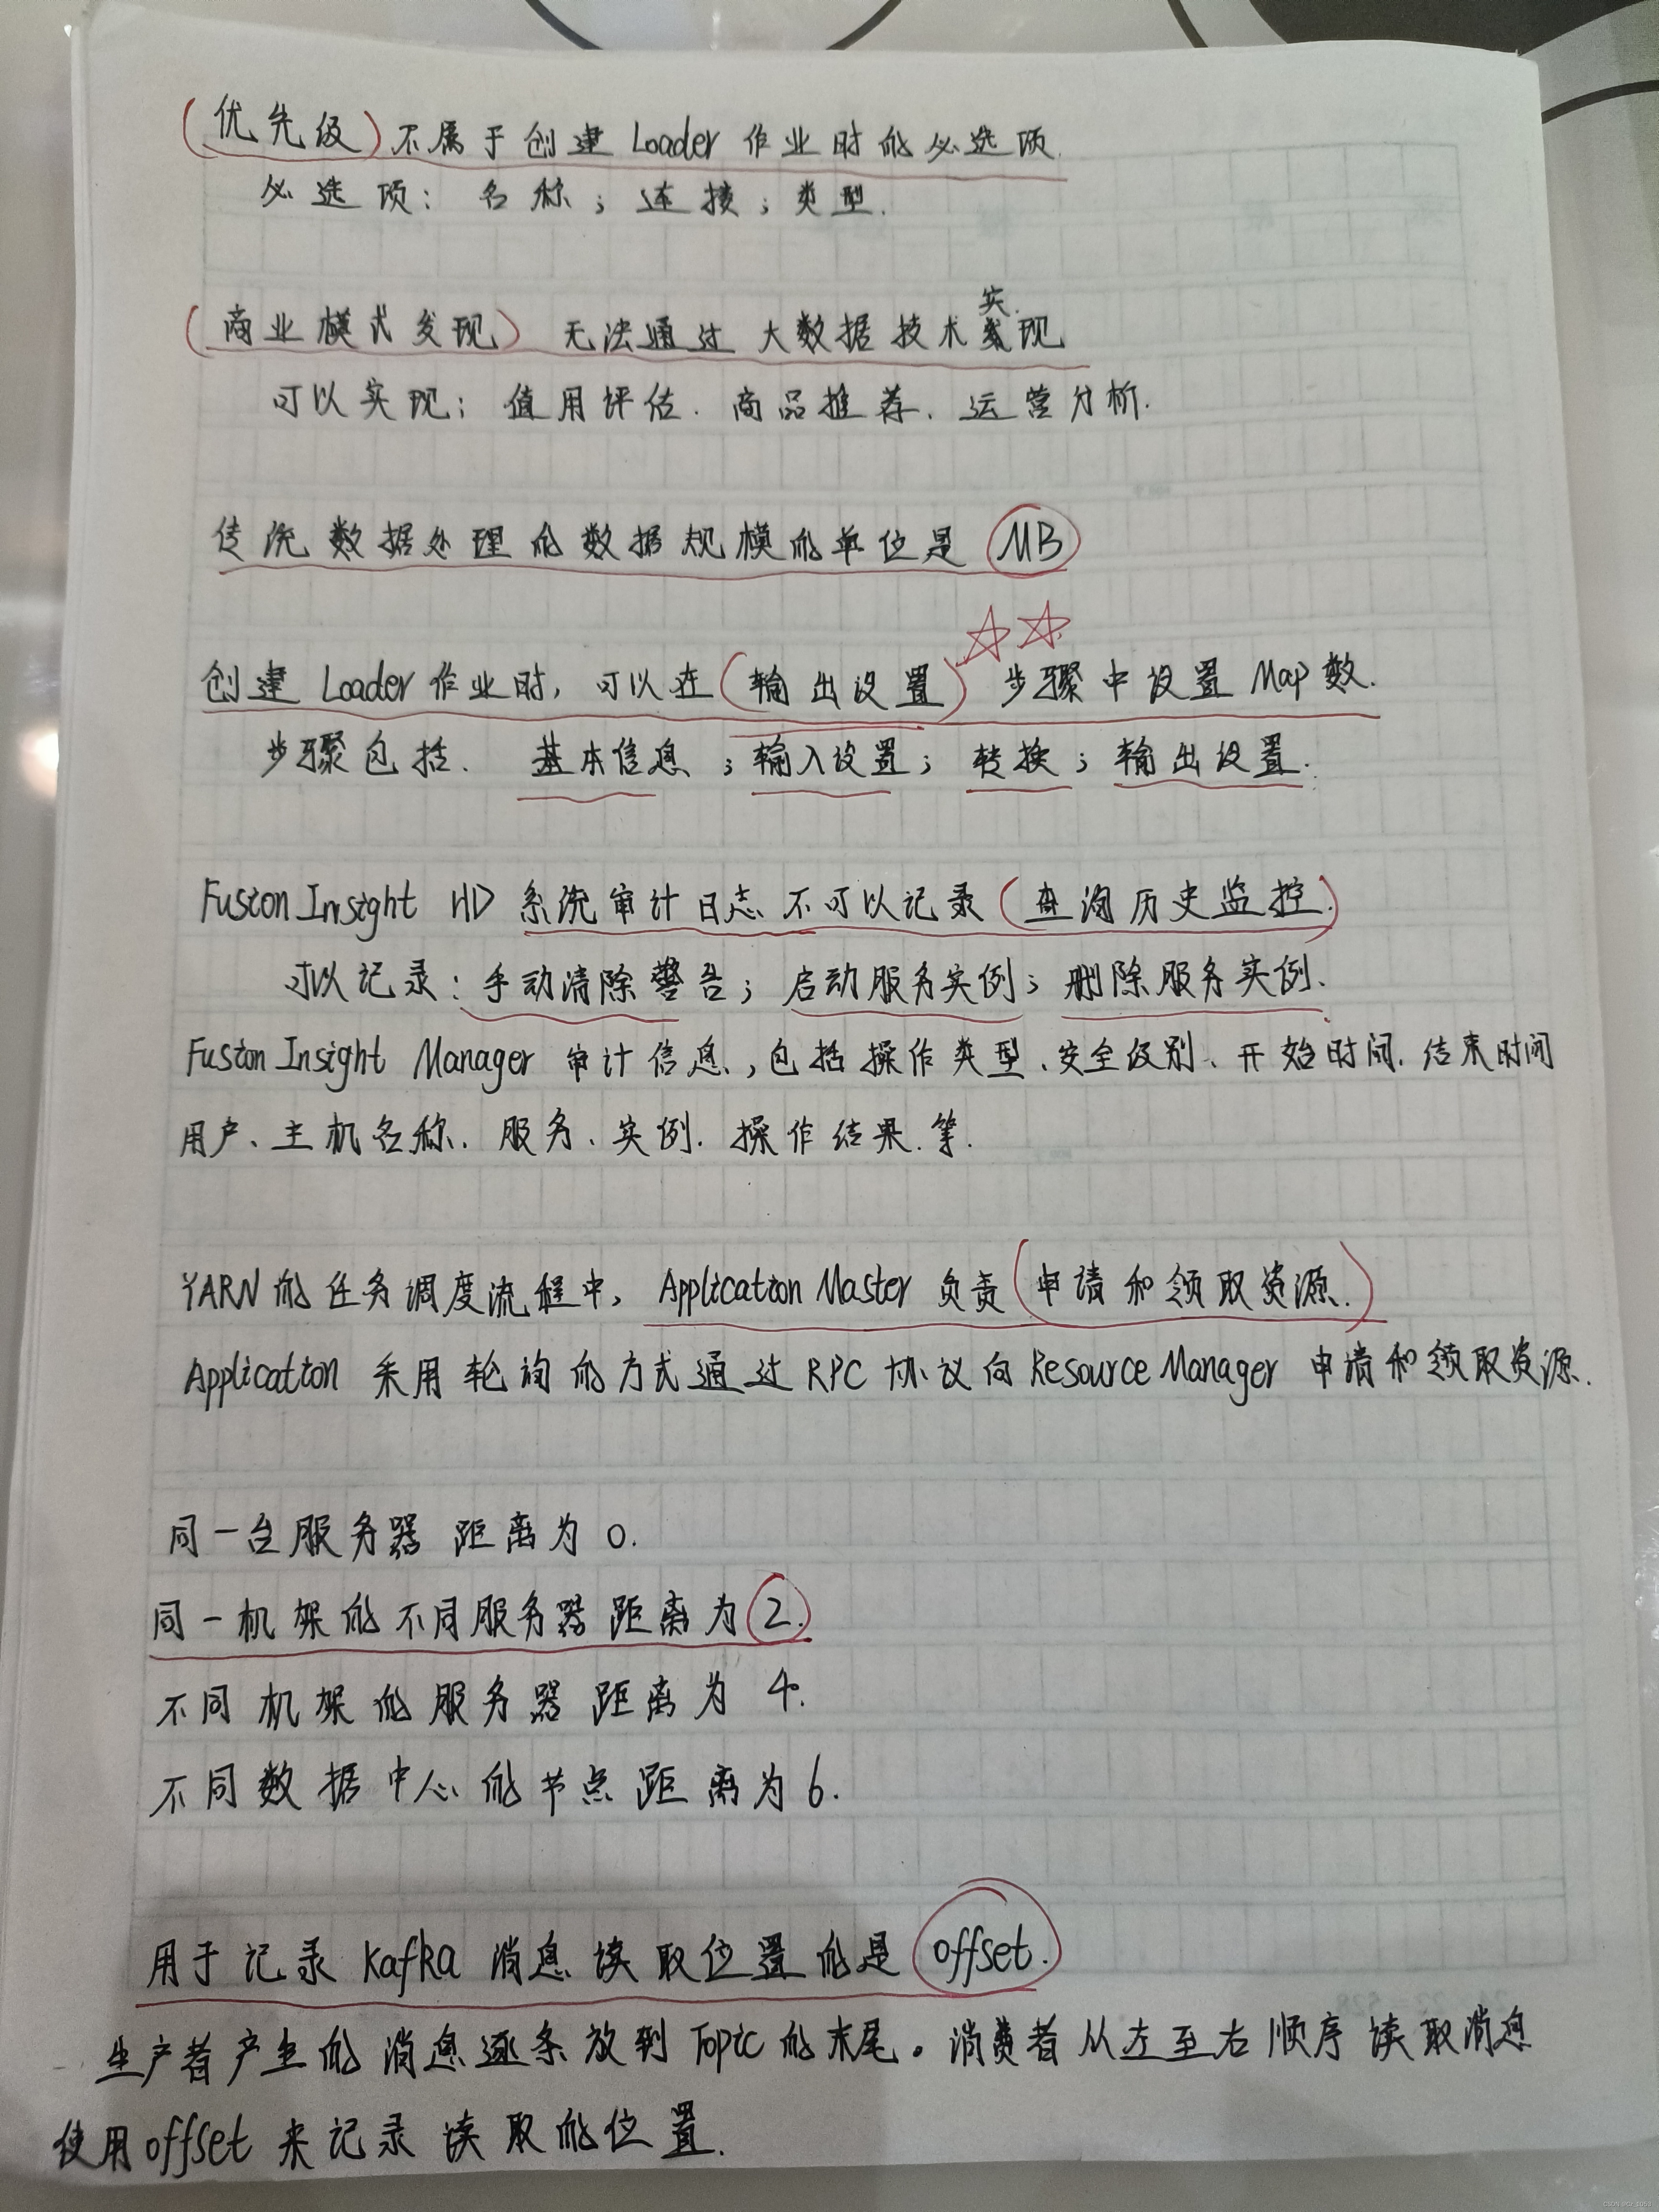 (优先级)不属于创建 Loader 作业时的必选项.
必选项: 名称; 连接; 类型.
(商业模式发现) 无法通过大数据技术实现
可以实现: 值用评估. 商品推荐. 运营分析.
传统数据处理的数据规模的单位是 MB
创建 Loader 作业时, 可以在(输出设置)☆☆ 步骤中设置 Map 数.
步骤包括. 基本信息; 输入设置; 转换; 输出设置.
Fusion Insight HD 系统审计日志不可以记录(查询历史监控.)
可以记录: 手动清除警告; 启动服务实例; 删除服务实例.
Fusion Insight Manager 审计信息, 包括操作类型、安全级别、开始时间. 结束时间
用户、主机名称. 服务、实例. 操作结果. 等.
YARN 的任务调度流程中, Application Master 负责(申请和领取资源.)
Application 采用轮询的方式通过 RPC 协议向 Resource Manager 申请和领取资源.
同一台服务器 距离为 0.
同一机架的不同服务器 距离为 2.
不同机架的服务器 距离为 4.
不同数据中心的节点距离为 6.
用于记录 Kafka 消息读取位置的是 offset.
生产者产生的消息逐条放到 Topic 的末尾。消费者从左至右顺序读取消息
使用 offset 来记录读取的位置.